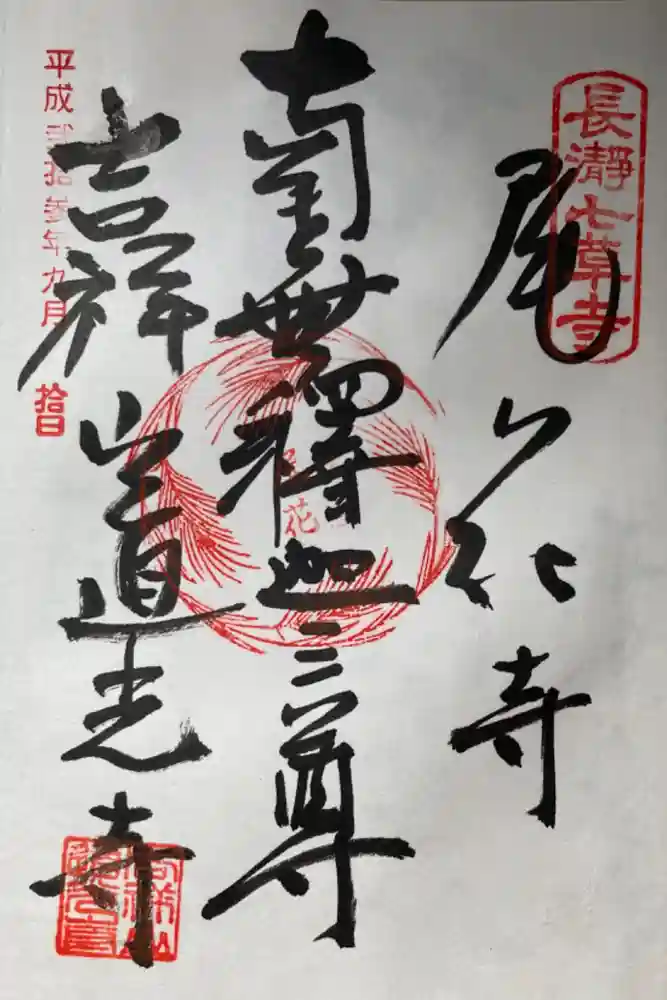 長瀞七草寺
尾花寺
南無釋迦三尊
花
吉祥山道光寺
平成弐拾参年九月
拾日